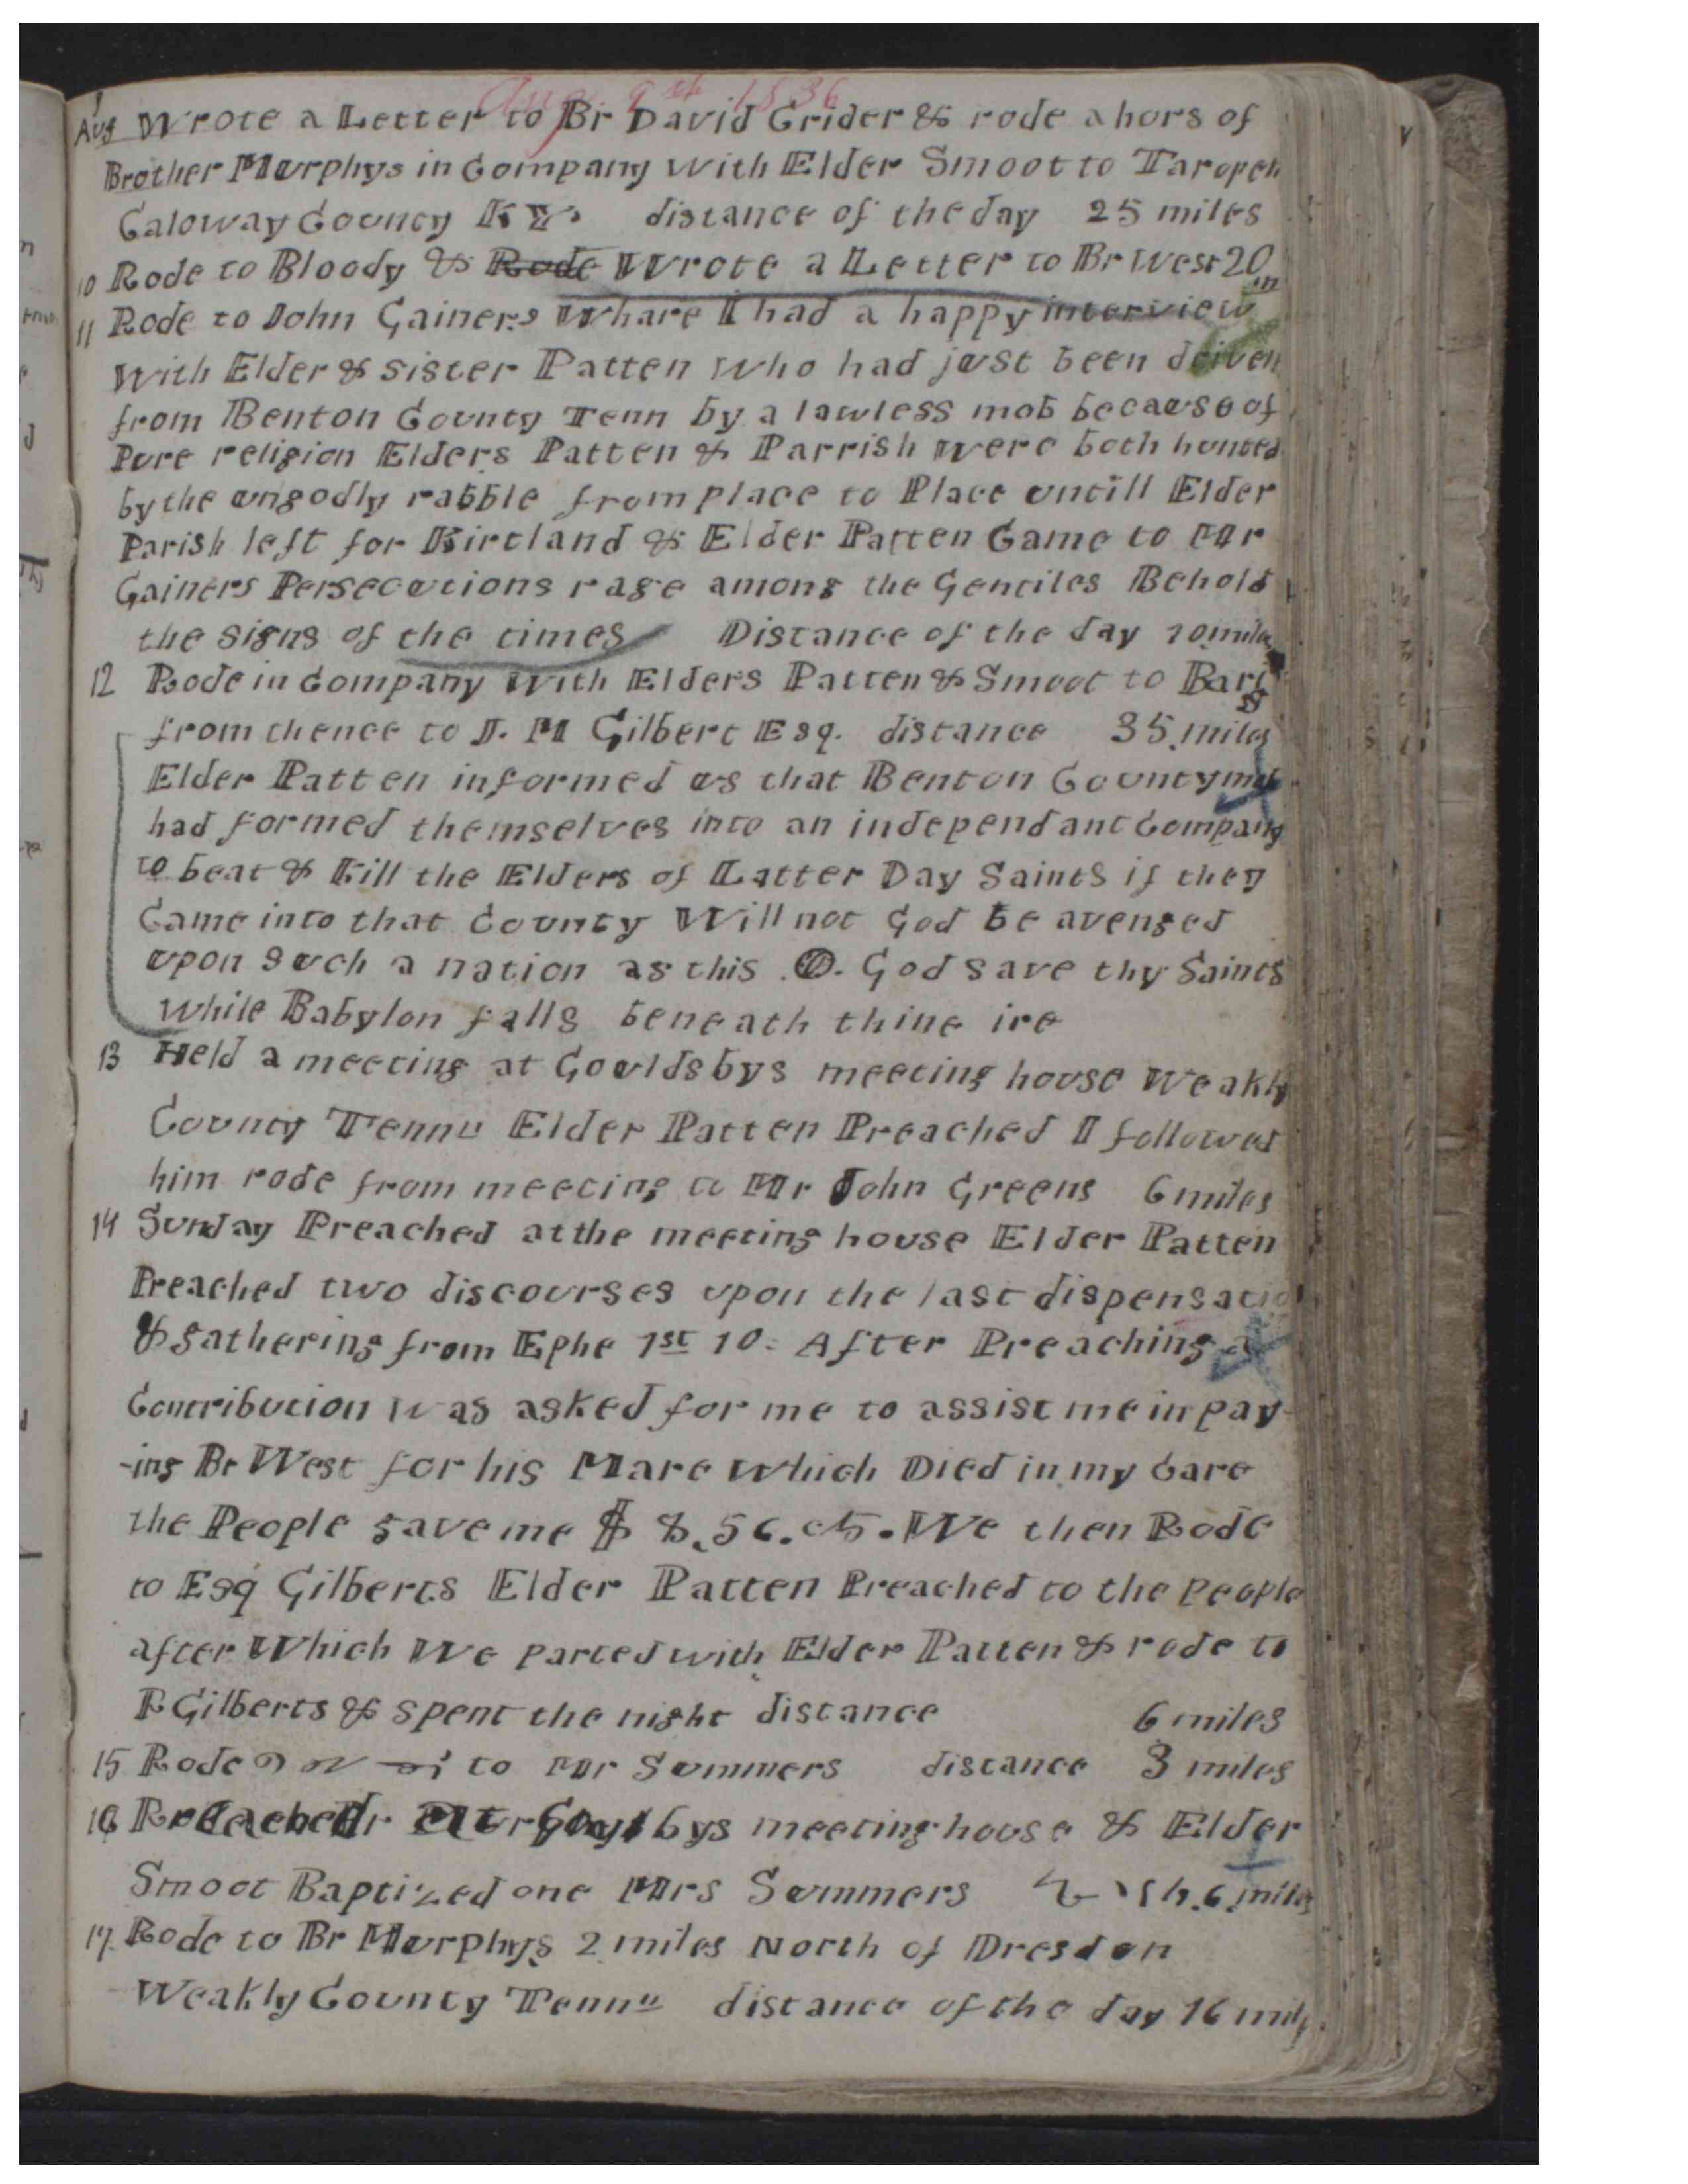 Aug 9th 1836
Aug Wrote a Letter to Br David Grider & rode a hors of
Brother Murphys in Company with Elder Smoot to Taropen
Caloway County KY. distance of the day 25 miles
10 Rode to Bloody & Rode Wrote a Letter to Br West 20 m
11 Rode to John Gainers Whare I had a happy interview
With Elder & sister Patten Who had just been driven
from Benton County Tenn by a lawless mob because of
Pure religion Elders Patten & Parrish were both hunted
by the ungodly rabble from place to Place untill Elder
Parish left for Kirtland & Elder Patten Came to Mr
Gainers Persecutions rage among the Gentiles Behold
the signs of the times Distance of the day 10 miles
12 Rode in Company With Elders Patten & Smoot to Paris
from thence to J. M Gilbert Esq. distance 35 miles
Elder Patten informed us that Benton County mob
had formed themselves into an independant Company
to beat & Kill the Elders of Latter Day Saints if they
Came into that County Will not God be avenged
upon such a nation as this. O. God save thy Saints
while Babylon falls beneath thine ire
13 Held a meeting at Gouldsbys meeting house Weakly
County Tennu Elder Patten Preached I followed
him rode from meeting to Mr John Greens 6 miles
14 Sunday Preached at the meeting house Elder Patten
Preached two discourses upon the last dispensatio
& gathering from Ephe 1st 10: After Preaching a
Contribution was asked for me to assist me in pay-
-ing Br West for his Mare Which Died in my Care
the People gave me $8.56.cts. We then Rode
to Esq Gilberts Elder Patten Preached to the people
after Which We parted with Elder Patten & rode to
R Gilberts & spent the night distance 6 miles
15 Rode to Mr Summers distance 3 miles
16 Preached at bys meeting house & Elder
Smoot Baptized one Mrs Summers 6 miles
17. Rode to Br Murphys 2 miles North of Dresden
Weakly County Tennu distance of the day 16 mils